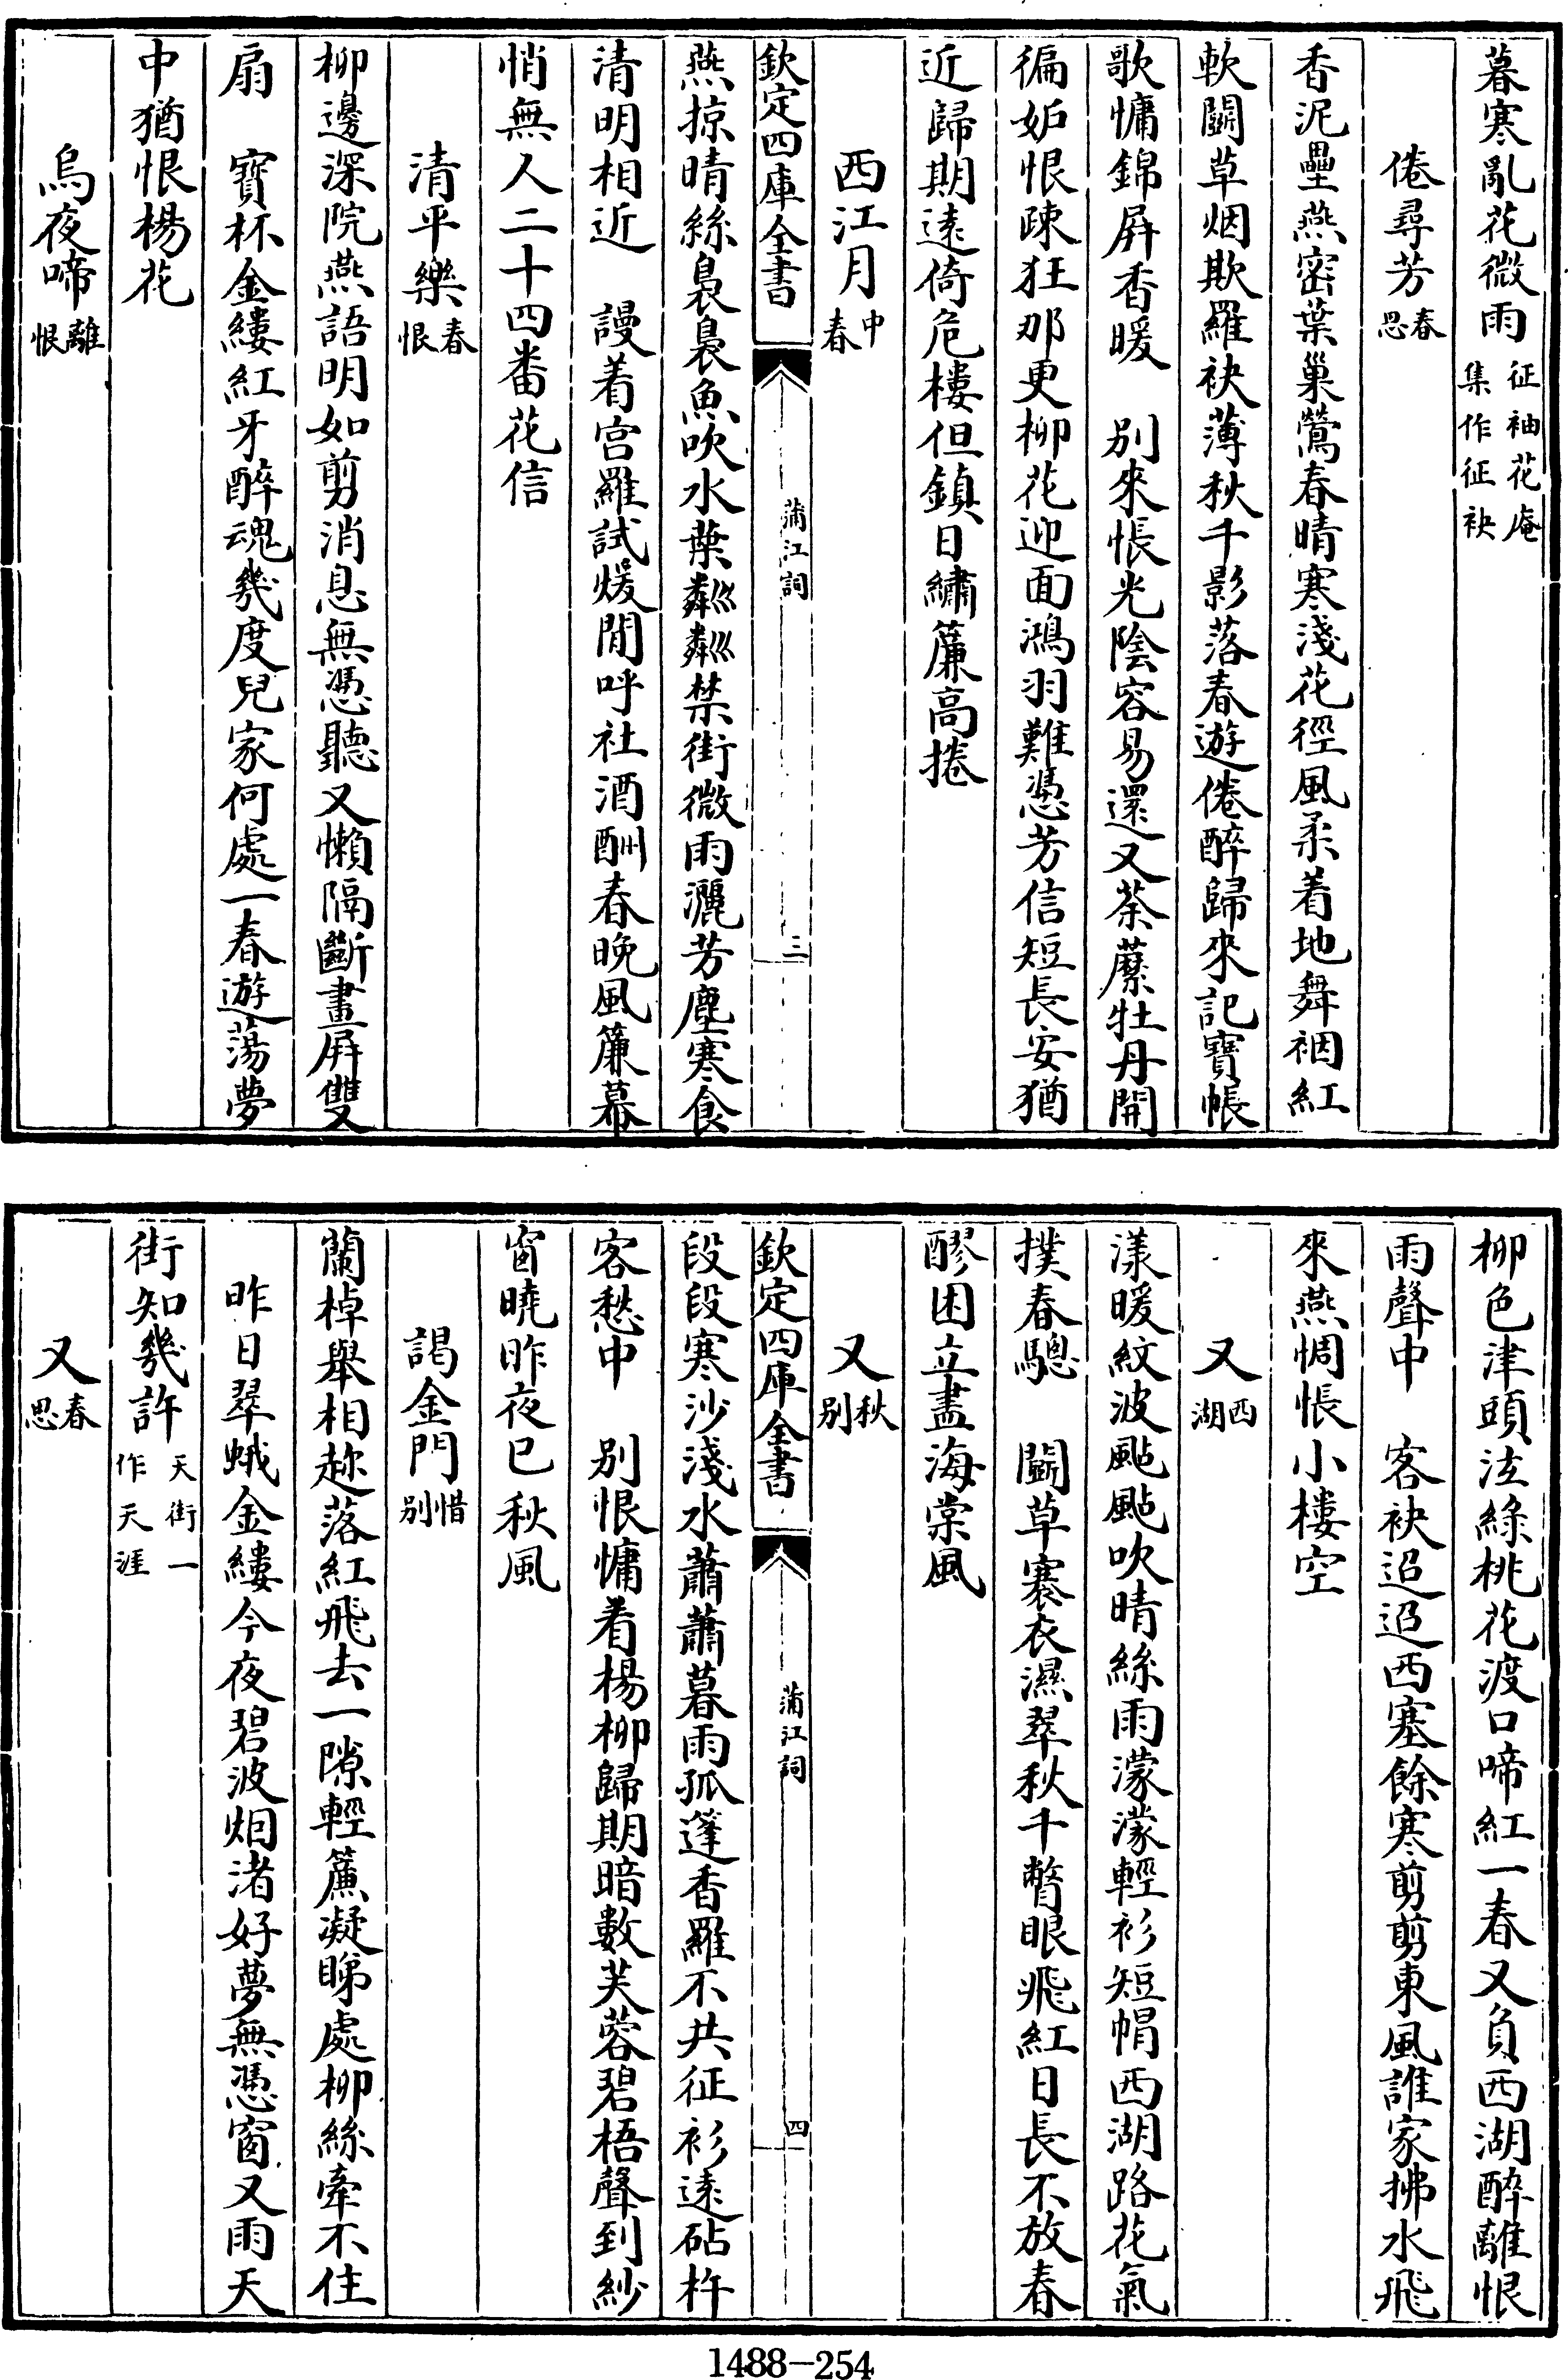 暮寒亂花微雨征袖花庵集作征袂
倦尋芳春思
香泥壘燕密葉巢鶯春晴寒淺花徑風柔着地舞裀紅
軟鬭草烟欺羅袂薄秋千影落春遊倦醉歸來記寶帳
歌慵錦屏香暖　別來悵光陰容易還又荼蘼牡丹開
徧妬恨疎狂那更柳花迎面鴻羽難憑芳信短長安猶
近歸期遠倚危樓但鎮日繡簾高捲
西江月春中
欽定四庫全書
蒲江詞
三
燕掠晴絲裊裊魚吹水葉粼粼禁街微雨灑芳塵寒食
清明相近　謾着宮羅試煖閒呼社酒酬春晚風簾幕
悄無人二十四番花信
清平樂春恨
柳邊深院燕語明如剪消息無憑聽又懶隔斷畫屏雙
扇　寶杯金縷紅牙醉魂幾度兒家何處一春遊蕩夢
中猶恨楊花
烏夜啼離恨
柳色津頭泫綠桃花渡口啼紅一春又負西湖醉離恨
雨聲中　客袂迢迢西塞餘寒剪剪東風誰家拂水飛
來燕惆悵小樓空
又西湖
漾暖紋波颭颭吹晴絲雨濛濛輕衫短帽西湖路花氣
撲春驄　鬭草褰衣濕翠秋千瞥眼飛紅日長不放春
醪困立盡海棠風
又秋別
欽定四庫全書
蒲江詞
四
段段寒沙淺水蕭蕭暮雨孤篷香羅不共征衫遠砧杵
客愁中　別恨慵看楊柳歸期暗數芙蓉碧梧聲到紗
窗曉昨夜已秋風
謁金門惜別
蘭棹舉相趂落紅飛去一隙輕簾凝睇處柳絲牽不住
昨日翠蛾金縷今夜碧波烟渚好夢無憑窗又雨天
街知幾許天街一作天涯
又春思
1488—254